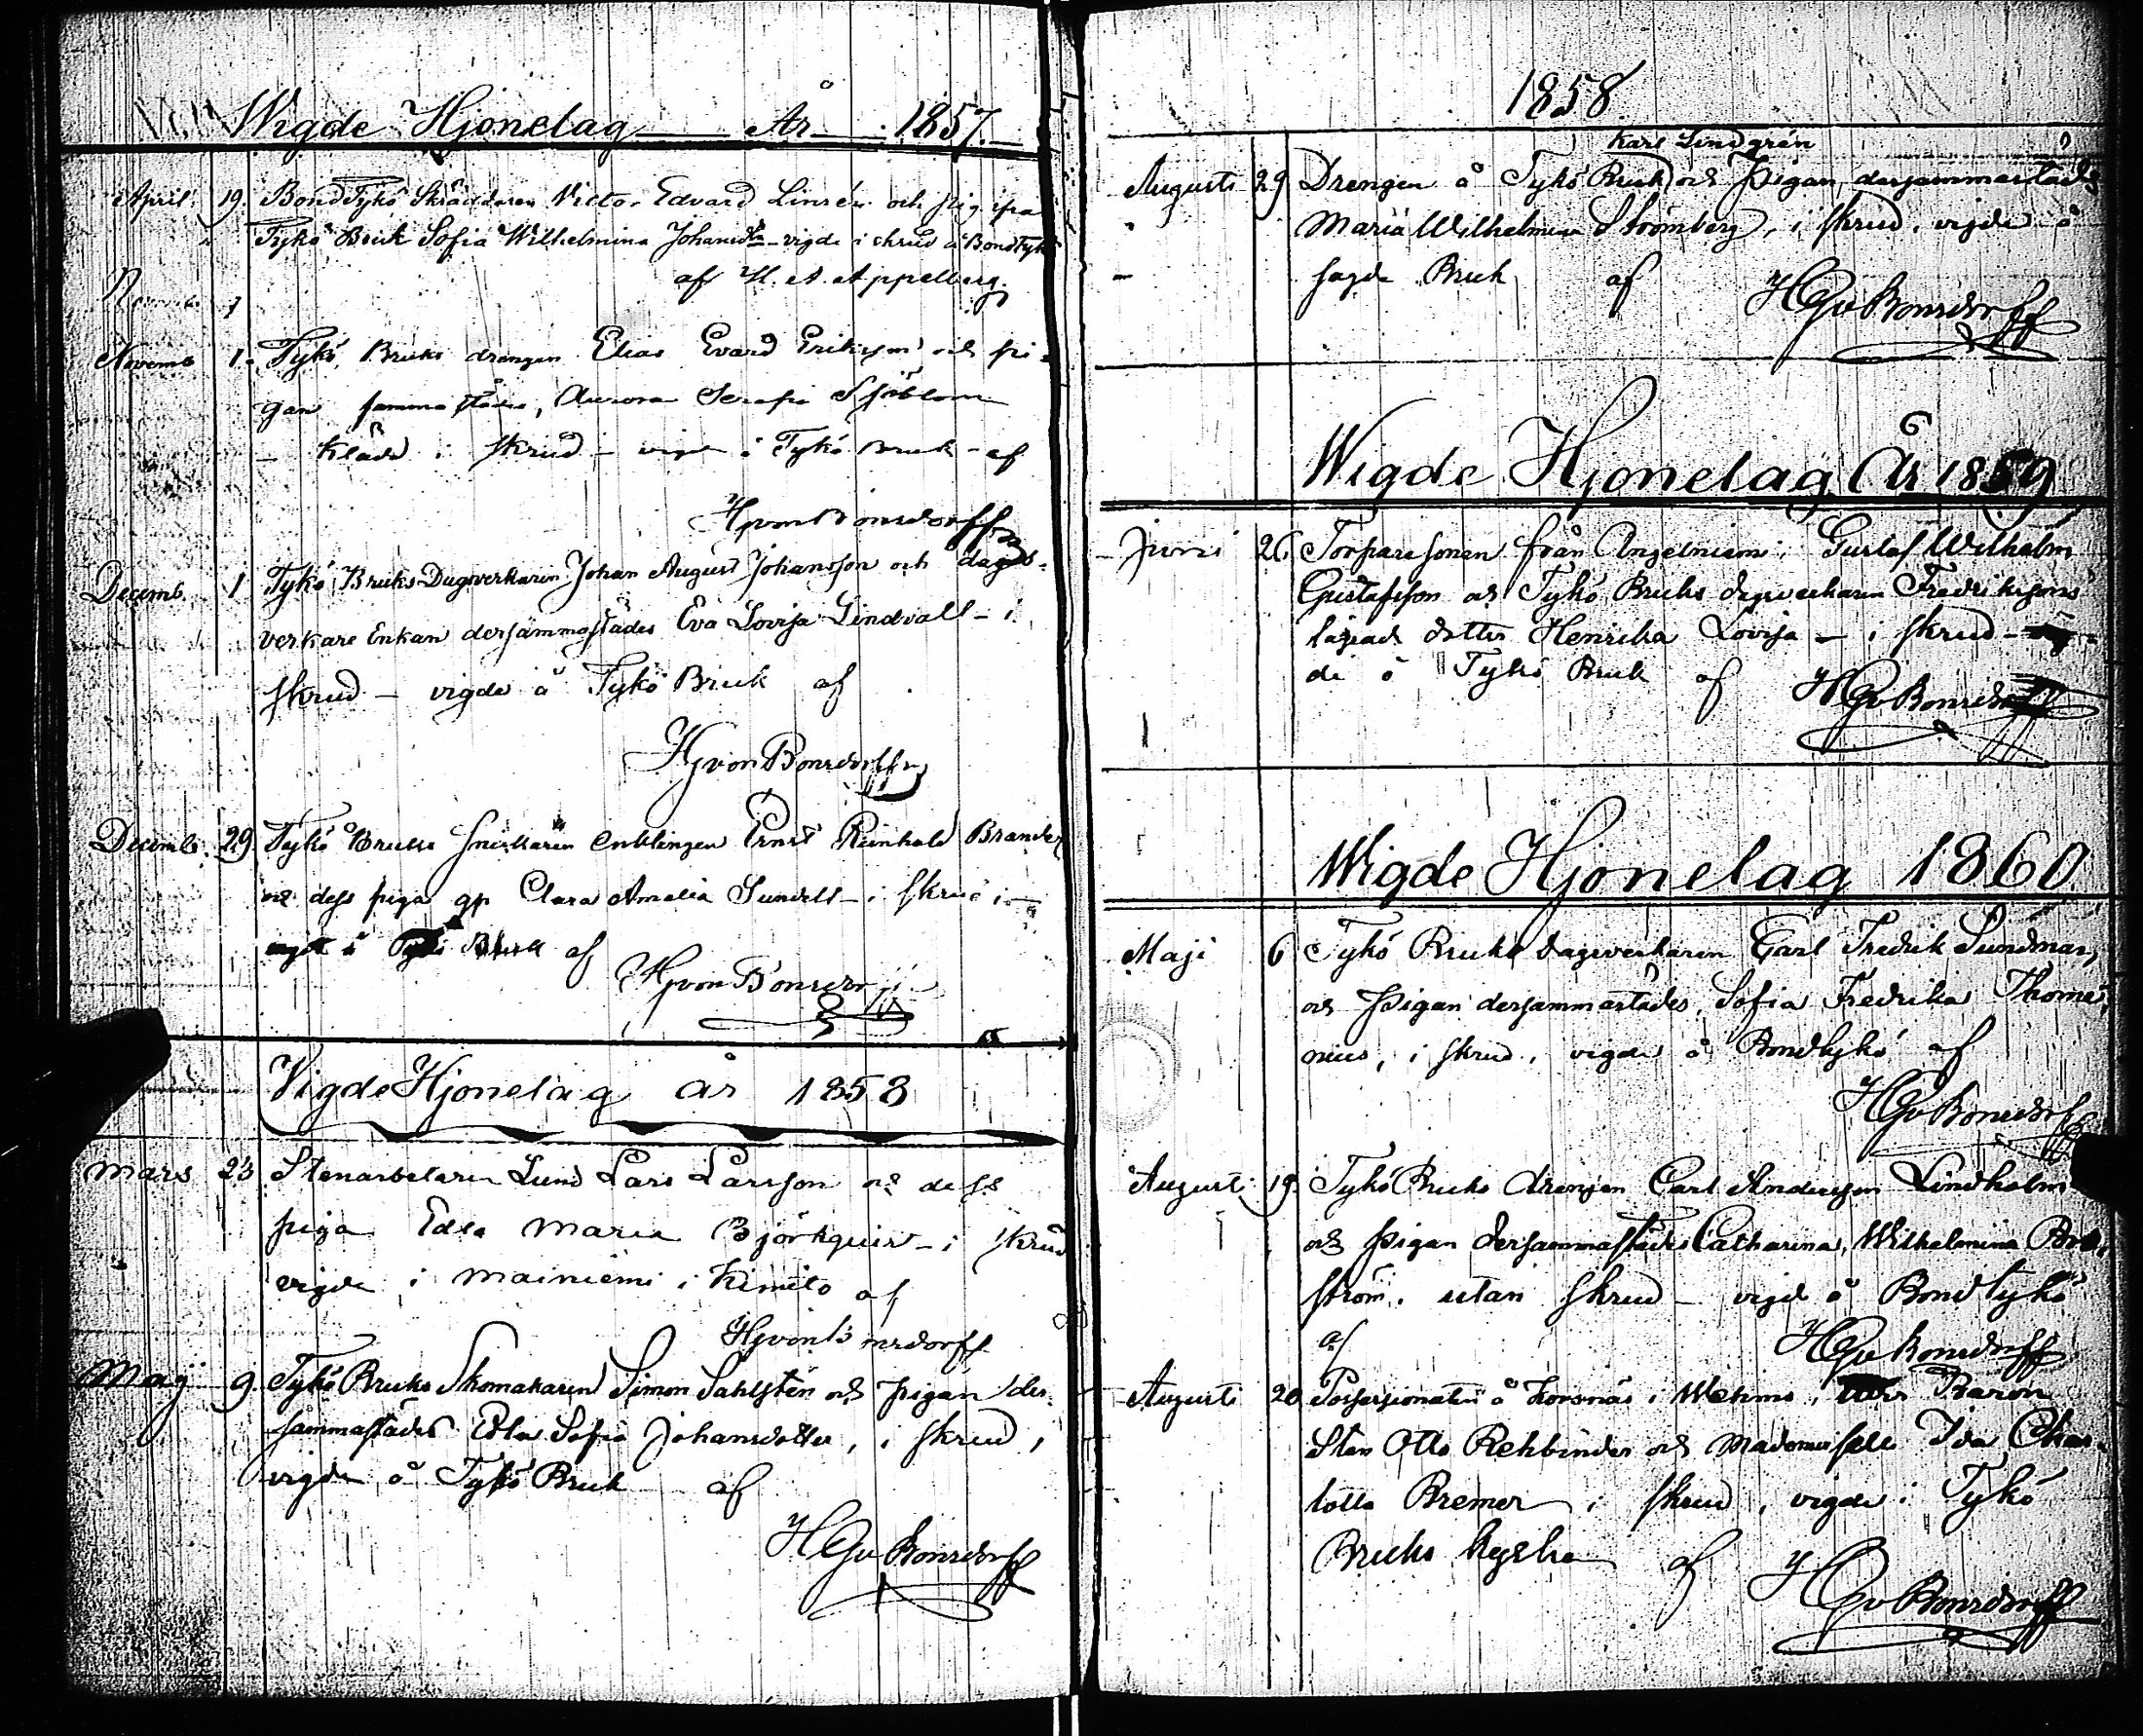 Wigde Hjonelag År 1857.
April. 19. BondTykö Skräddaren Victor Edvard Linrén och pig ifrå
Tykö Bruk Sofia Wilhelmina Johansdtr - vigde i skrud å BondTykö
af H. A. Appelberg.
Novemb 1
Novemb 1. Tykö Bruks drängen Elias Evard Eriksson och pi-
gan sammastädes, Aurora Serafia Sjöblom
- klädd i skrud - vigde i Tykö Bruk - af
HGvonBonsdorff
Decemb. 1 Tykö Bruks Dagsverkaren Johan August Johansson och dags-
verkare Enkan dersammastädes Eva Lovisa Lindvall - i
skrud - vigde å Tykö Bruk af
HGvonBonsdorff
Decemb. 29. Tykö Bruks Snickaren enklingen Ernst Reinhold Brander
och dess piga Clara Amalia Sundell - i skrud
å Tykö Bruk af
HGvonBonsdorff
Vigde Hjonelag år 1858
Mars 23 Stenarbetaren Lund Lars Larsson och dess
piga Edla Maria Björkquist - i skrud
vigde i Mainiemi i Kimito af
HGvonBonsdorff
Maij 9. Tykö Bruks Skomakaren Simon Sahlstén och pigan der-
sammastädes Edla Sofia Johansdotter, i skrud,
vigde å Tykö Bruk af
HGvBonsdorff
1858
Karl Lindgrén
Augusti 29 Drengen å Tykö Bruk och Pigan dersammastädes
Maria Wilhelmina Strömberg, i skrud, vigde å
sagde Bruk af HGvBonsdorff
Wigde Hjonelag År 1859
Juni 26. Torparesonen från Angelniemi, Gustaf Wilhelm
Gustafsson och Tykö Bruks dagsverkaren Fredrikssons
dotter Henrika Lovisa - i skrud -
de å Tykö Bruk af HGvBonsdorff
Wigde Hjonelag 1860.
Maji 6 Tykö Bruks dagsverkaren Carl Fredrik Sundman,
och Pigan dersammastädes, Sofia Fredrika Thome-
nius, i skrud, vigde å Bondtykö af
HGvBonsdorff
Augusti 19. Tykö Bruks drengen Carl Andersson Lindholm
och pigan dersammastädes Catharina Wilhelmina
ström. utan skrud - vigde å Bondtykö
af HGvBonsdorff
Augusti 20 Possessionaten å Korsnäs i Wehmo, Baron
Sten Otto Rehbinder och Mademoiselle Ida Char-
lotta Bremer i skrud, vigde i Tykö
Bruks kyrka af HGvBonsdorff